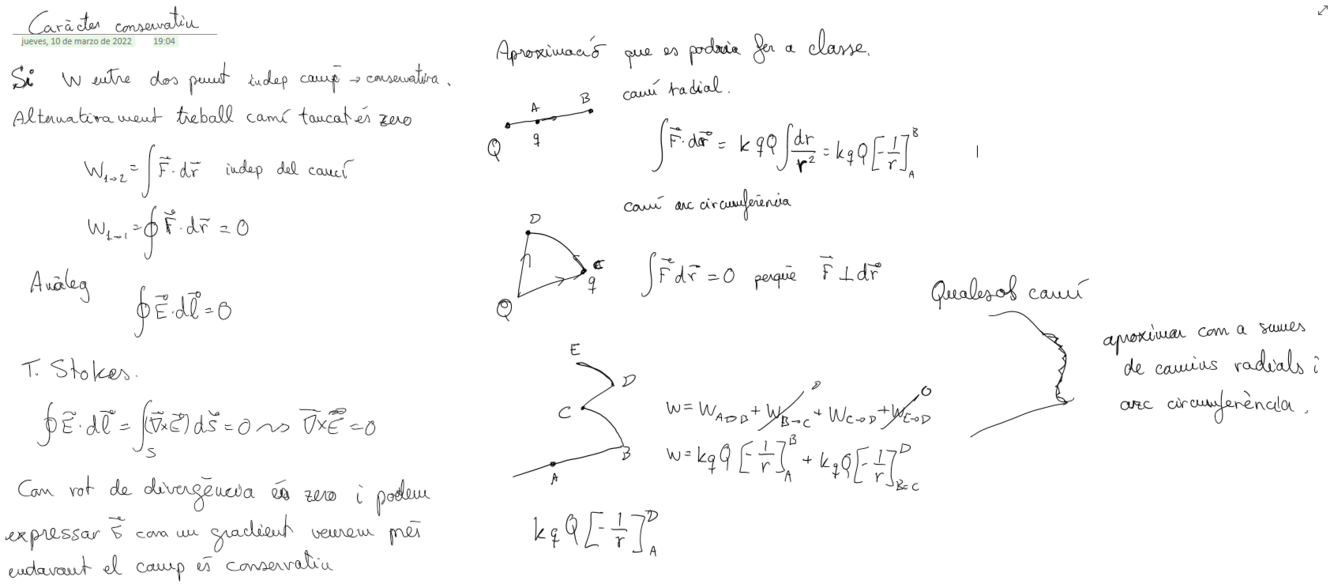 Caràcter conservatiu
jueves, 10 de marzo de 2022 19:04
Si W entre dos punt indep camp → conservativa.
Alternativament treball camí tancat és zero
W₁→₂ = ∫ F⃗·dr⃗ indep del camí
W₁→₁ = ∮ F⃗·dr⃗ = 0
Anàleg
∮ E⃗·dl⃗ = 0
T. Stokes.
∮ E⃗·dl⃗ = ∫_S (∇⃗×E⃗) ds⃗ = 0 ⇝ ∇⃗×E⃗ = 0
Com rot de divergència és zero i podem
expressar E⃗ com un gradient veurem més
endavant el camp és conservatiu
Aproximació que es podria fer a classe.
camí radial.
Q A q B
∫ F⃗·dr⃗ = k q Q ∫ dr/r² = k q Q [-1/r]_A^B
camí arc circumferència
D C q Q
∫ F⃗ dr⃗ = 0 perquè F⃗ ⊥ dr⃗
E D C B A
W = W_A→B + W_B→C + W_C→D + W_E→D
0 0
W = k q Q [-1/r]_A^B + k q Q [-1/r]_B=C^D
k q Q [-1/r]_A^D
Qualesol camí
aproximar com a sumes
de camins radials i
arc circumferència.